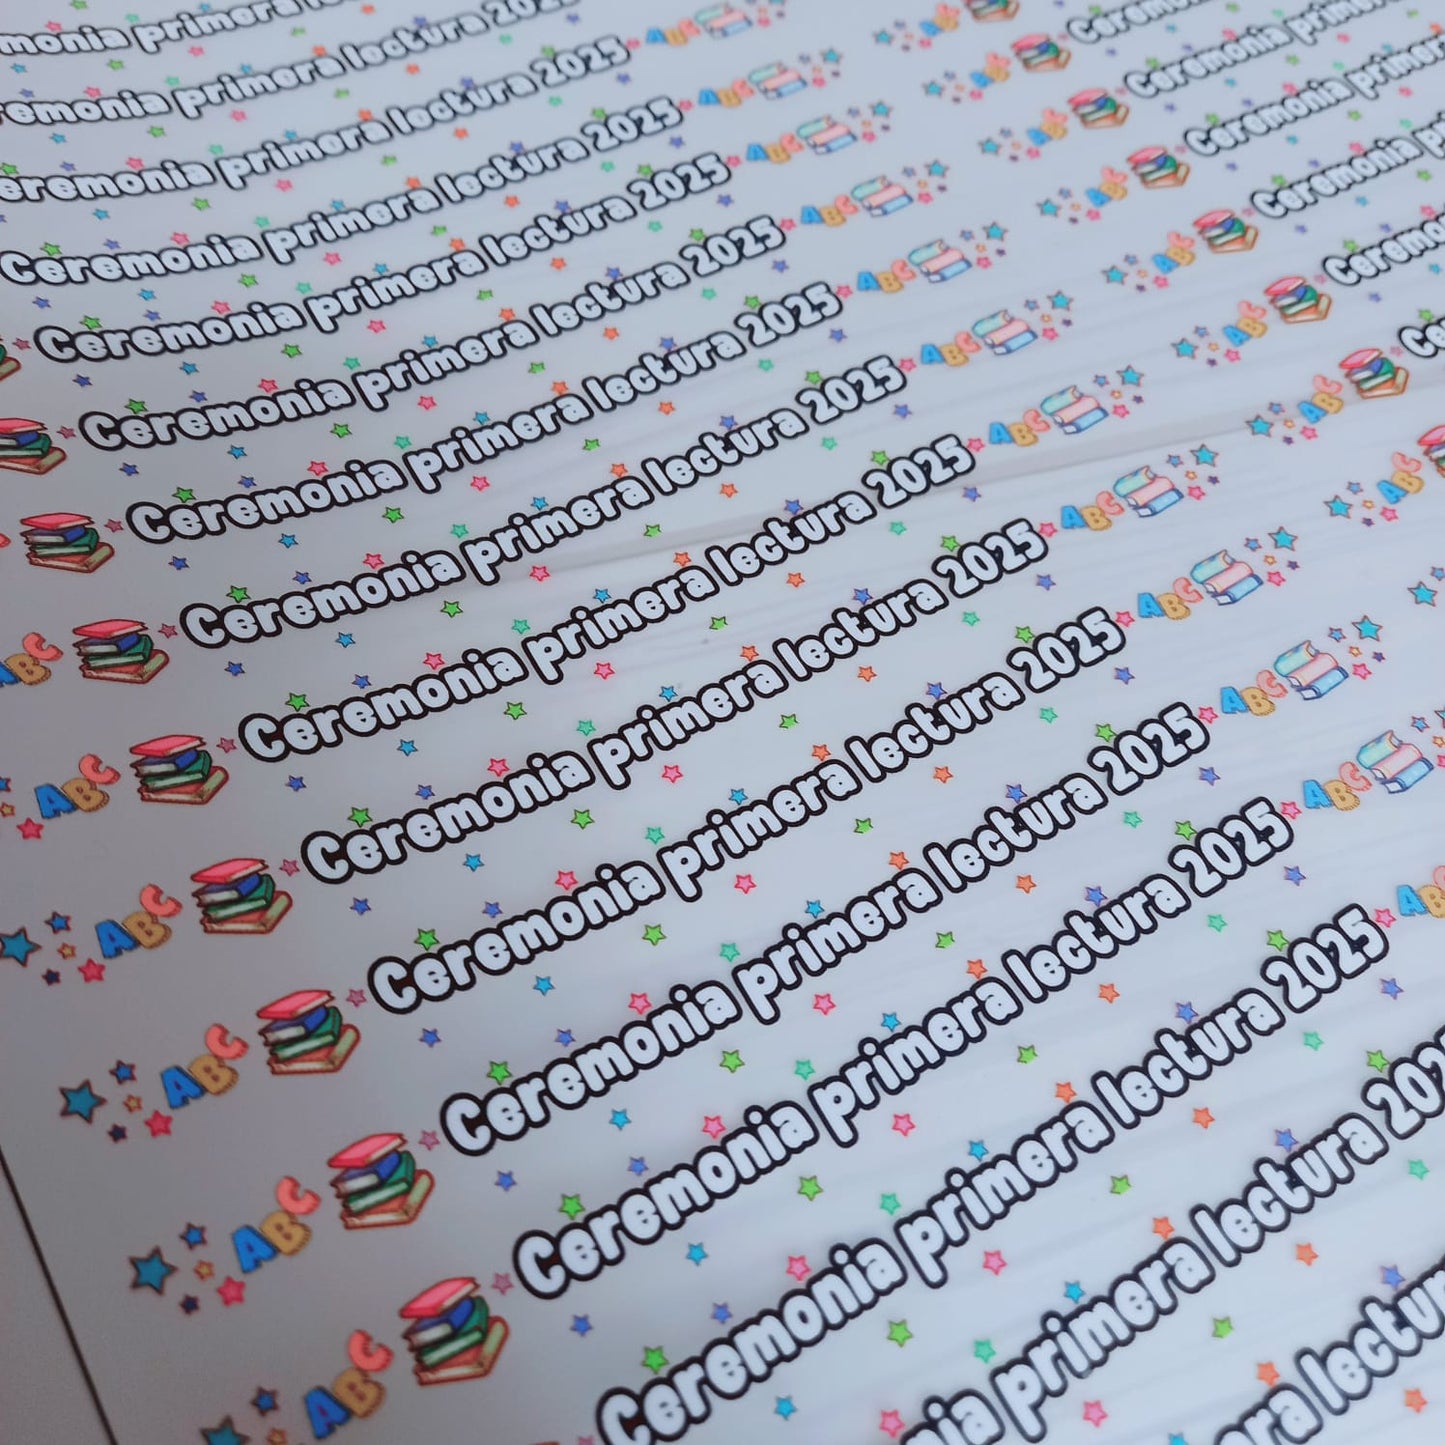 monia primera
remonia primera lectura 202
eremonia primera lectura 2025 ABC ABC
Ceremonia primera lectura 2025 ABC ABC Ceremonia
Ceremonia primera lectura 2025 ABC ABC Ceremonia
Ceremonia primera lectura 2025 ABC ABC Ceremonia
Ceremonia primera lectura 2025 ABC ABC
ABC Ceremonia primera lectura 2025 ABC ABC
ABC Ceremonia primera lectura 2025 ABC ABC
ABC Ceremonia primera lectura 2025 ABC ABC
ABC Ceremonia primera lectura 2025 ABC
ABC Ceremonia primera lectura 2025 ABC
ABC Ceremonia primera lectura 2025 ABC
ABC Ceremonia primera lectura 2025 ABC
nia primera lectura 202
era lectura